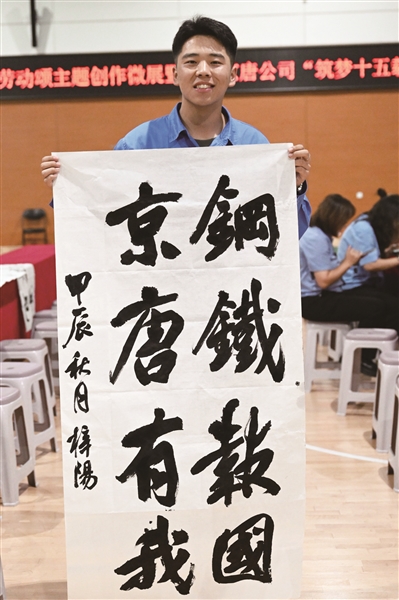 劳动颂主题创作微展 唐公司“筑梦十五
鋼鐵報國
京唐有我
甲辰秋月梓陽